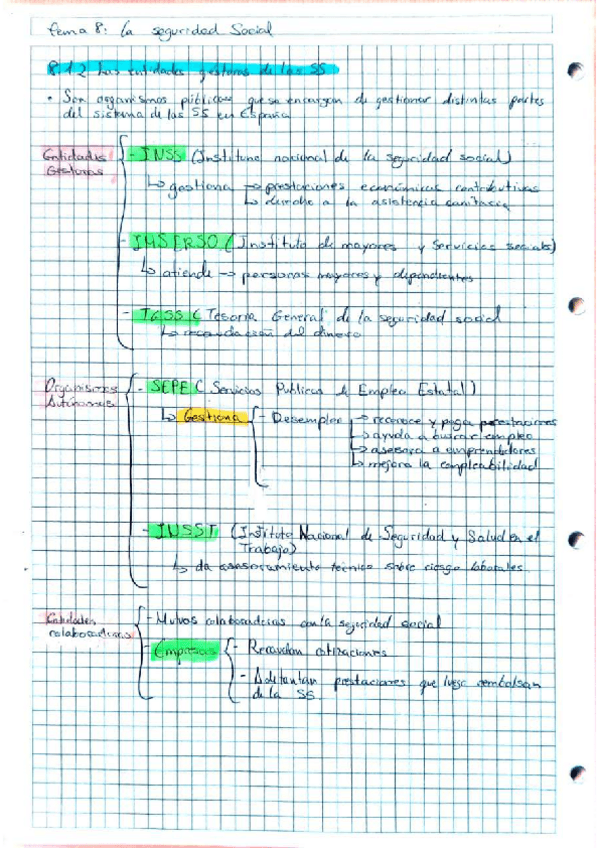 Tema 8: La seguridad Social
8.1.2 Las entidades gestoras de las SS
• Son organismos públicos que se encargan de gestionar distintas partes
del sistema de las SS en España
Entidades
Gestoras
- INSS (Instituno nacional de la seguridad social)
↳ gestiona → prestaciones económicas contributivas
↳ derecho a la asistencia sanitaria
- IMSERSO (Instituto de mayores y servicios sociales)
↳ atiende → personas mayores y dependientes
- TGSS (Tesorería General de la seguridad social
↳ recaudación del dinero
Organismos
Autónomos
- SEPE (Servicios Publicos de Empleo Estatal)
↳ Gestiona
- Desempleo
→ reconoce y paga prestaciones
↳ ayuda a buscar empleo
↳ asesora a emprendedores
↳ mejora la empleabilidad
- INSST (Instituto Nacional de Seguridad y Salud en el
Trabajo)
↳ da asesoramiento técnico sobre riesgo laborales
Entidades
colaboradoras
- Mutuas colaboradoras con la seguridad social
- Empresas
- Recaudan cotizaciones
- Adelantan prestaciones que luego rembolsan
de la SS